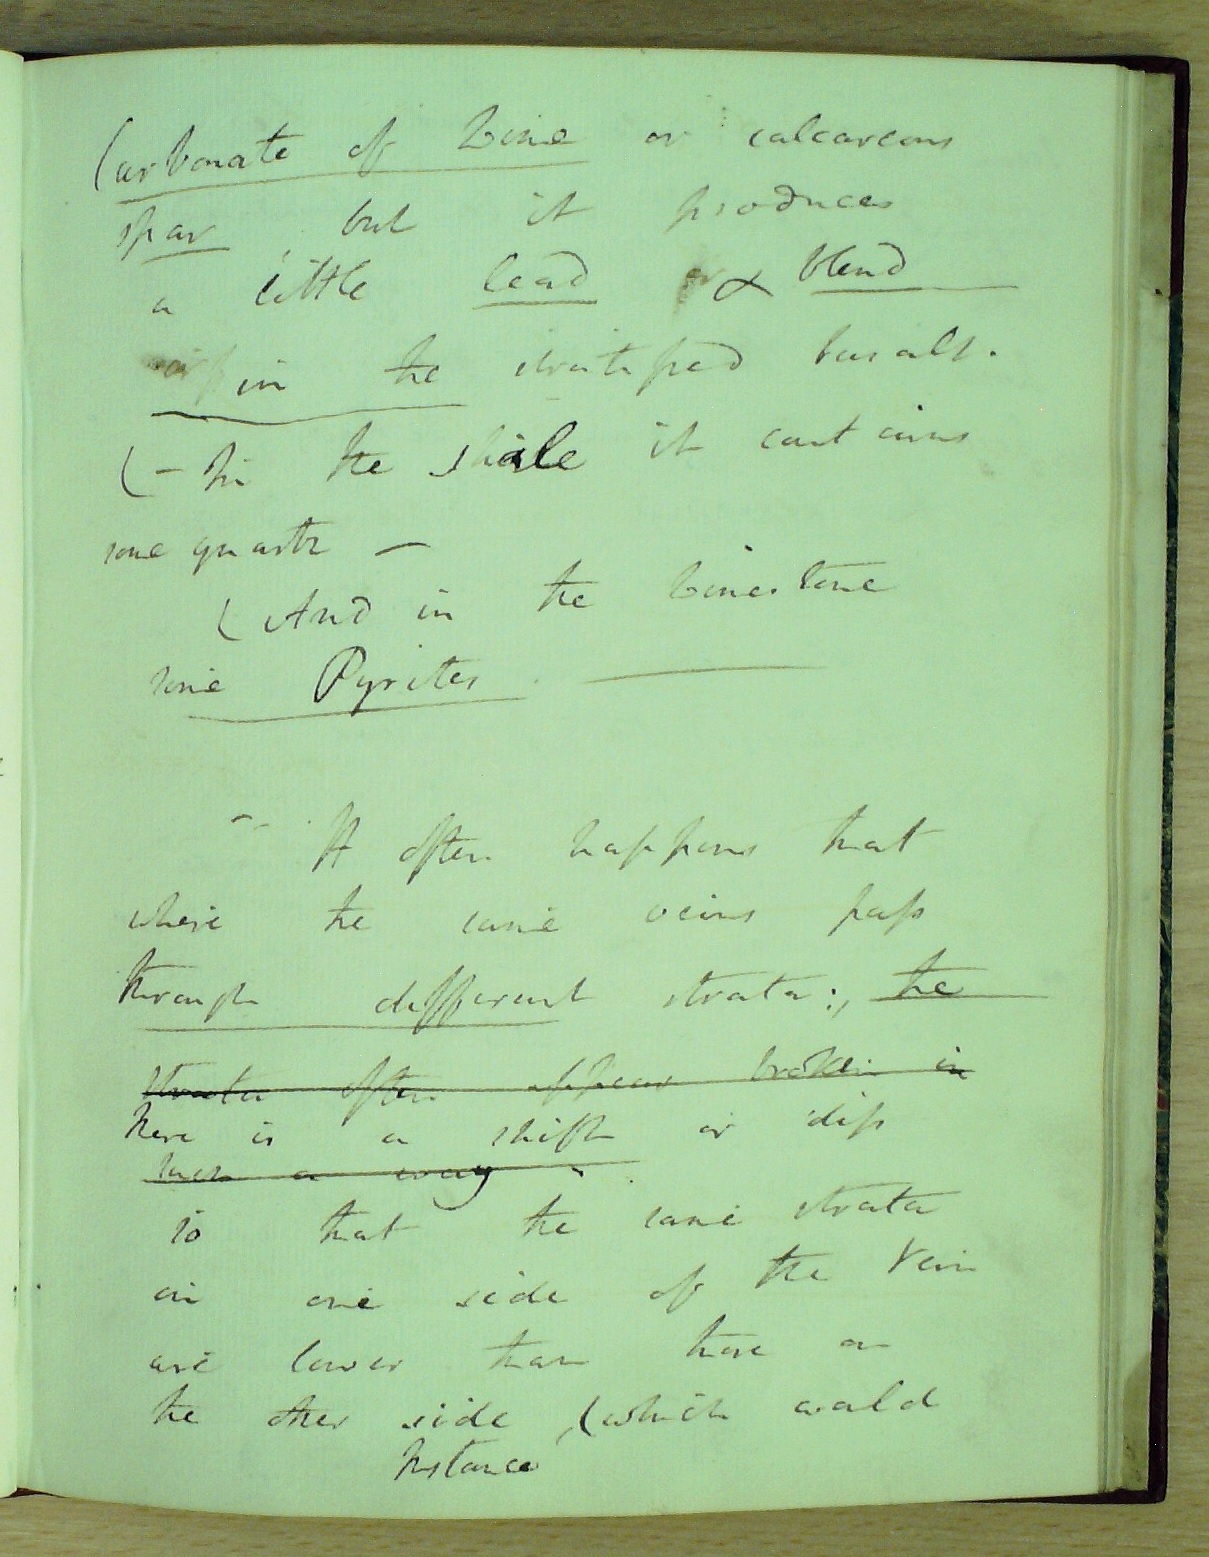 Carbonate of Lime or calcareous
spar, but it produces
a little lead & blend
in the stratified basalt.
(- In the shale it contains
some quartz -
(And in the Limestone
some Pyrites.
It often happens that
where the same veins pass
through different strata:, the
strata often appear broken in
there is a shift or dip
such a way
so that the same strata
on one side of the Vein
are lower than those on
the other side, (which would
Instance